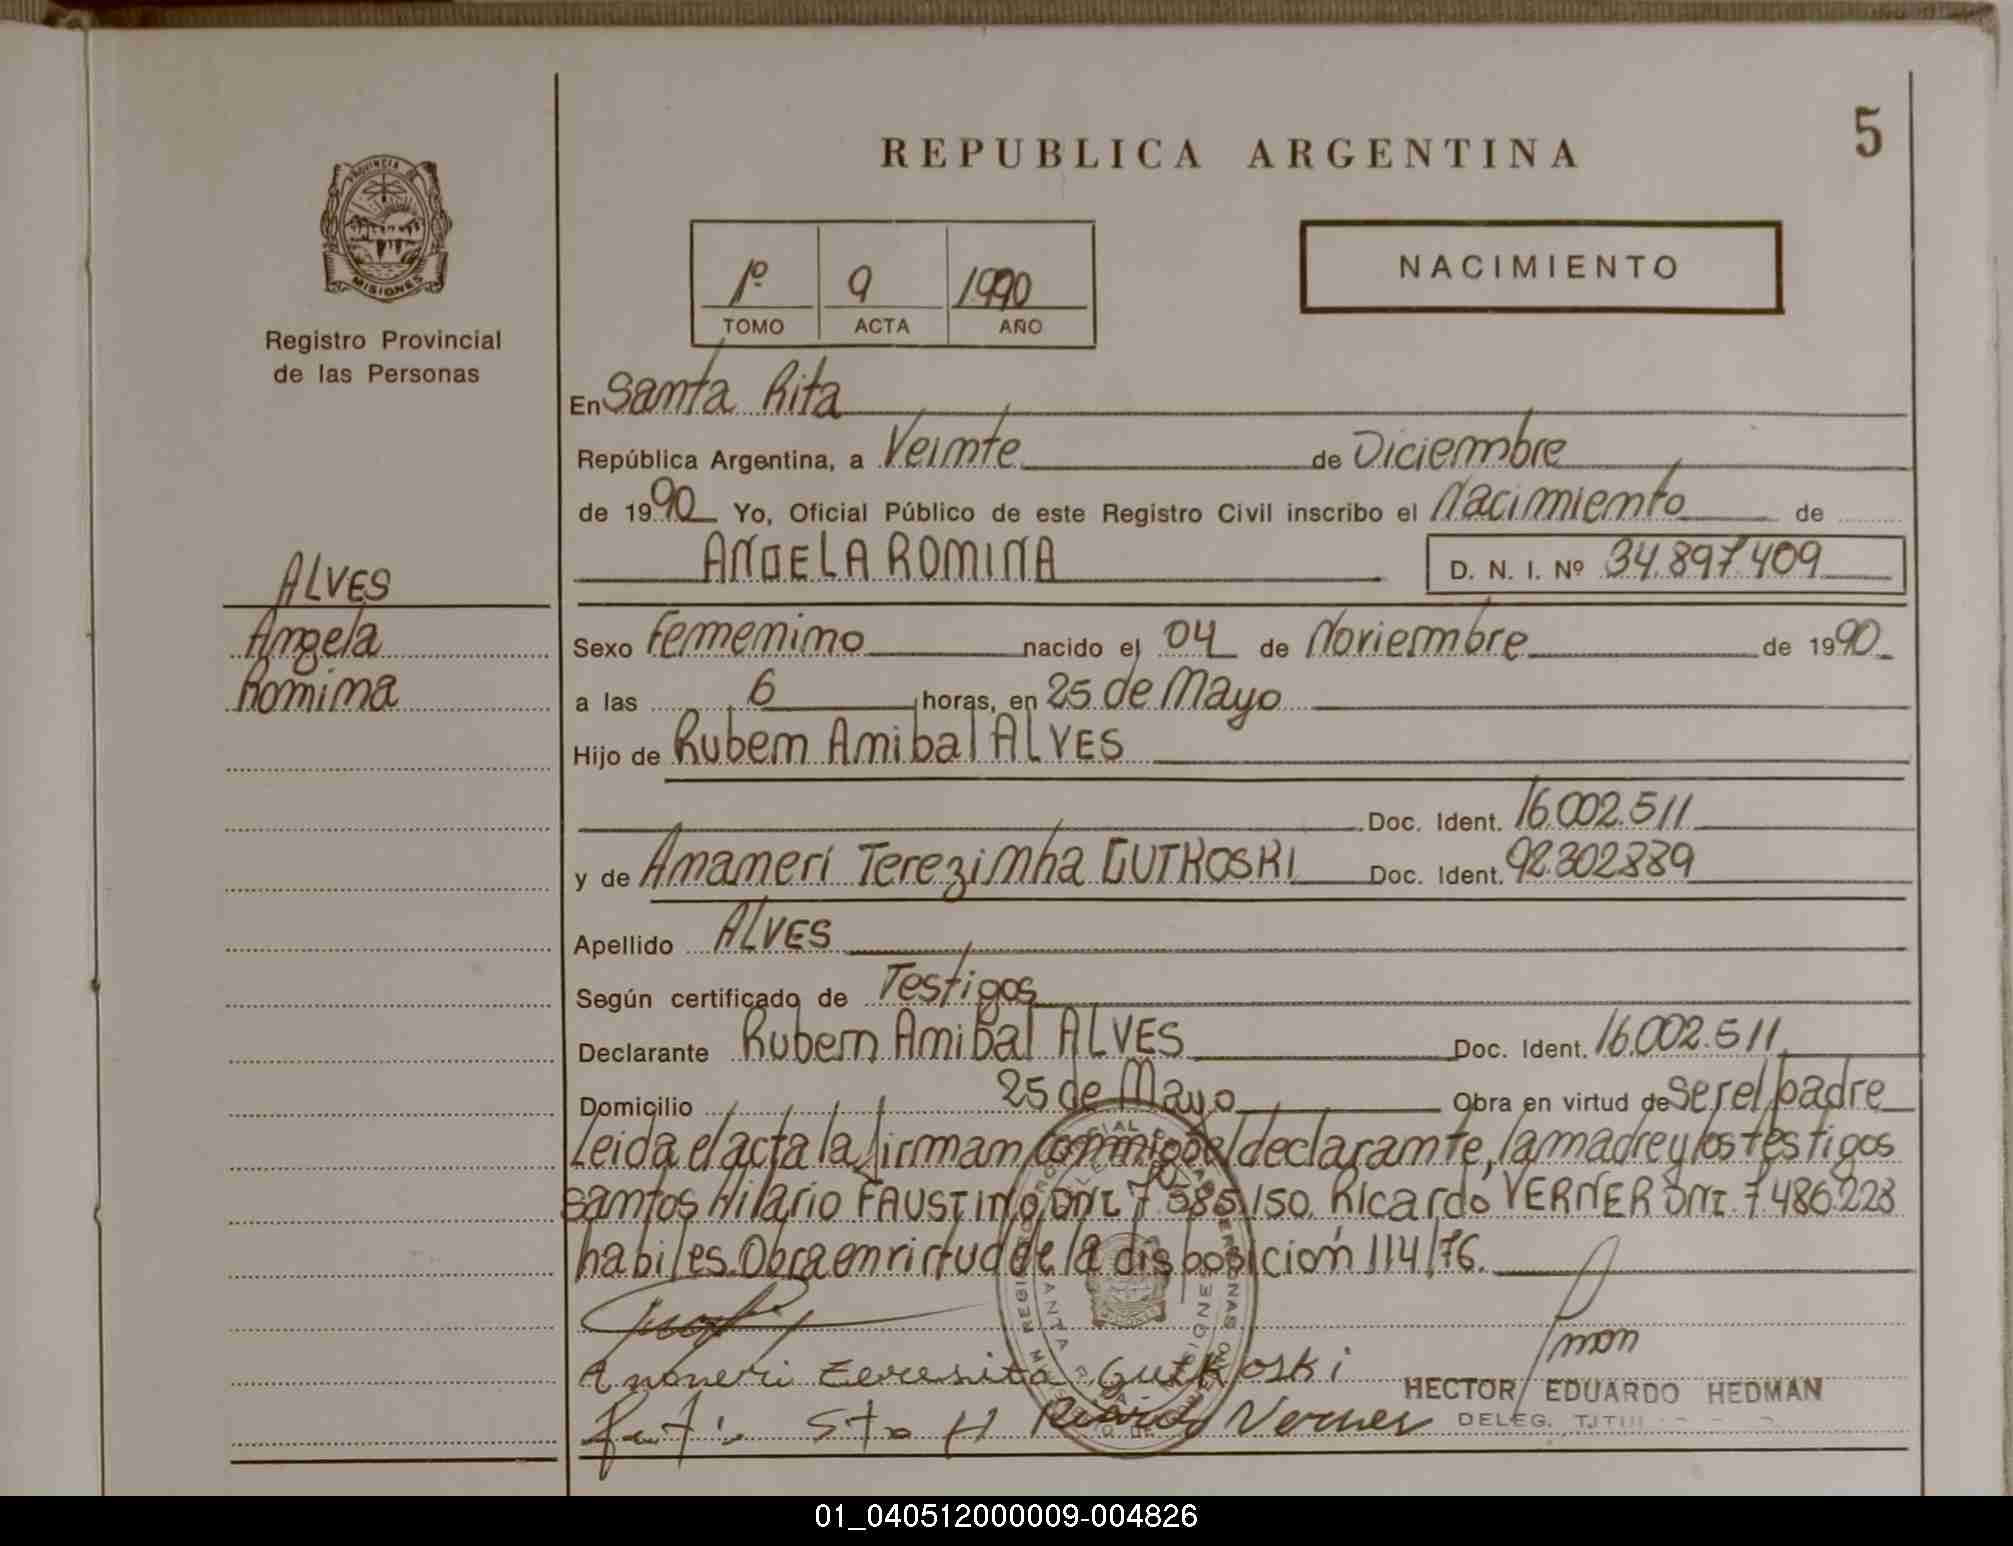 REPUBLICA ARGENTINA
5
PROVINCIA DE
MISIONES
Registro Provincial
de las Personas
1º 9 1990
TOMO ACTA AÑO
NACIMIENTO
En Santa Rita
República Argentina, a Veinte de Diciembre
de 1990 Yo, Oficial Público de este Registro Civil inscribo el Nacimiento de
ANGELA ROMINA D. N. I. Nº 34.897.409
ALVES
Angela
Romina
Sexo Femenino nacido el 04 de Noviembre de 1990
a las 6 horas, en 25 de Mayo
Hijo de Ruben Anibal ALVES
Doc. Ident. 16.002.511
y de Anameri Terezinha GUTKOSKI Doc. Ident. 92.302.889
Apellido ALVES
Según certificado de Testigos
Declarante Ruben Anibal ALVES Doc. Ident. 16.002.511
Domicilio 25 de Mayo Obra en virtud de ser el padre
Leida el acta la firman conmigo el declarante, la madre y los testigos
santos Hilario FAUSTINO DNI 7.585.150. Ricardo VERNER DNI. 7.486.228
habiles. Obra en virtud de la disposición 114/76.
Anoneri Teresita Gutkoski
Sto H Ricardo Verner
HECTOR EDUARDO HEDMAN
DELEG. TIT
01_040512000009-004826